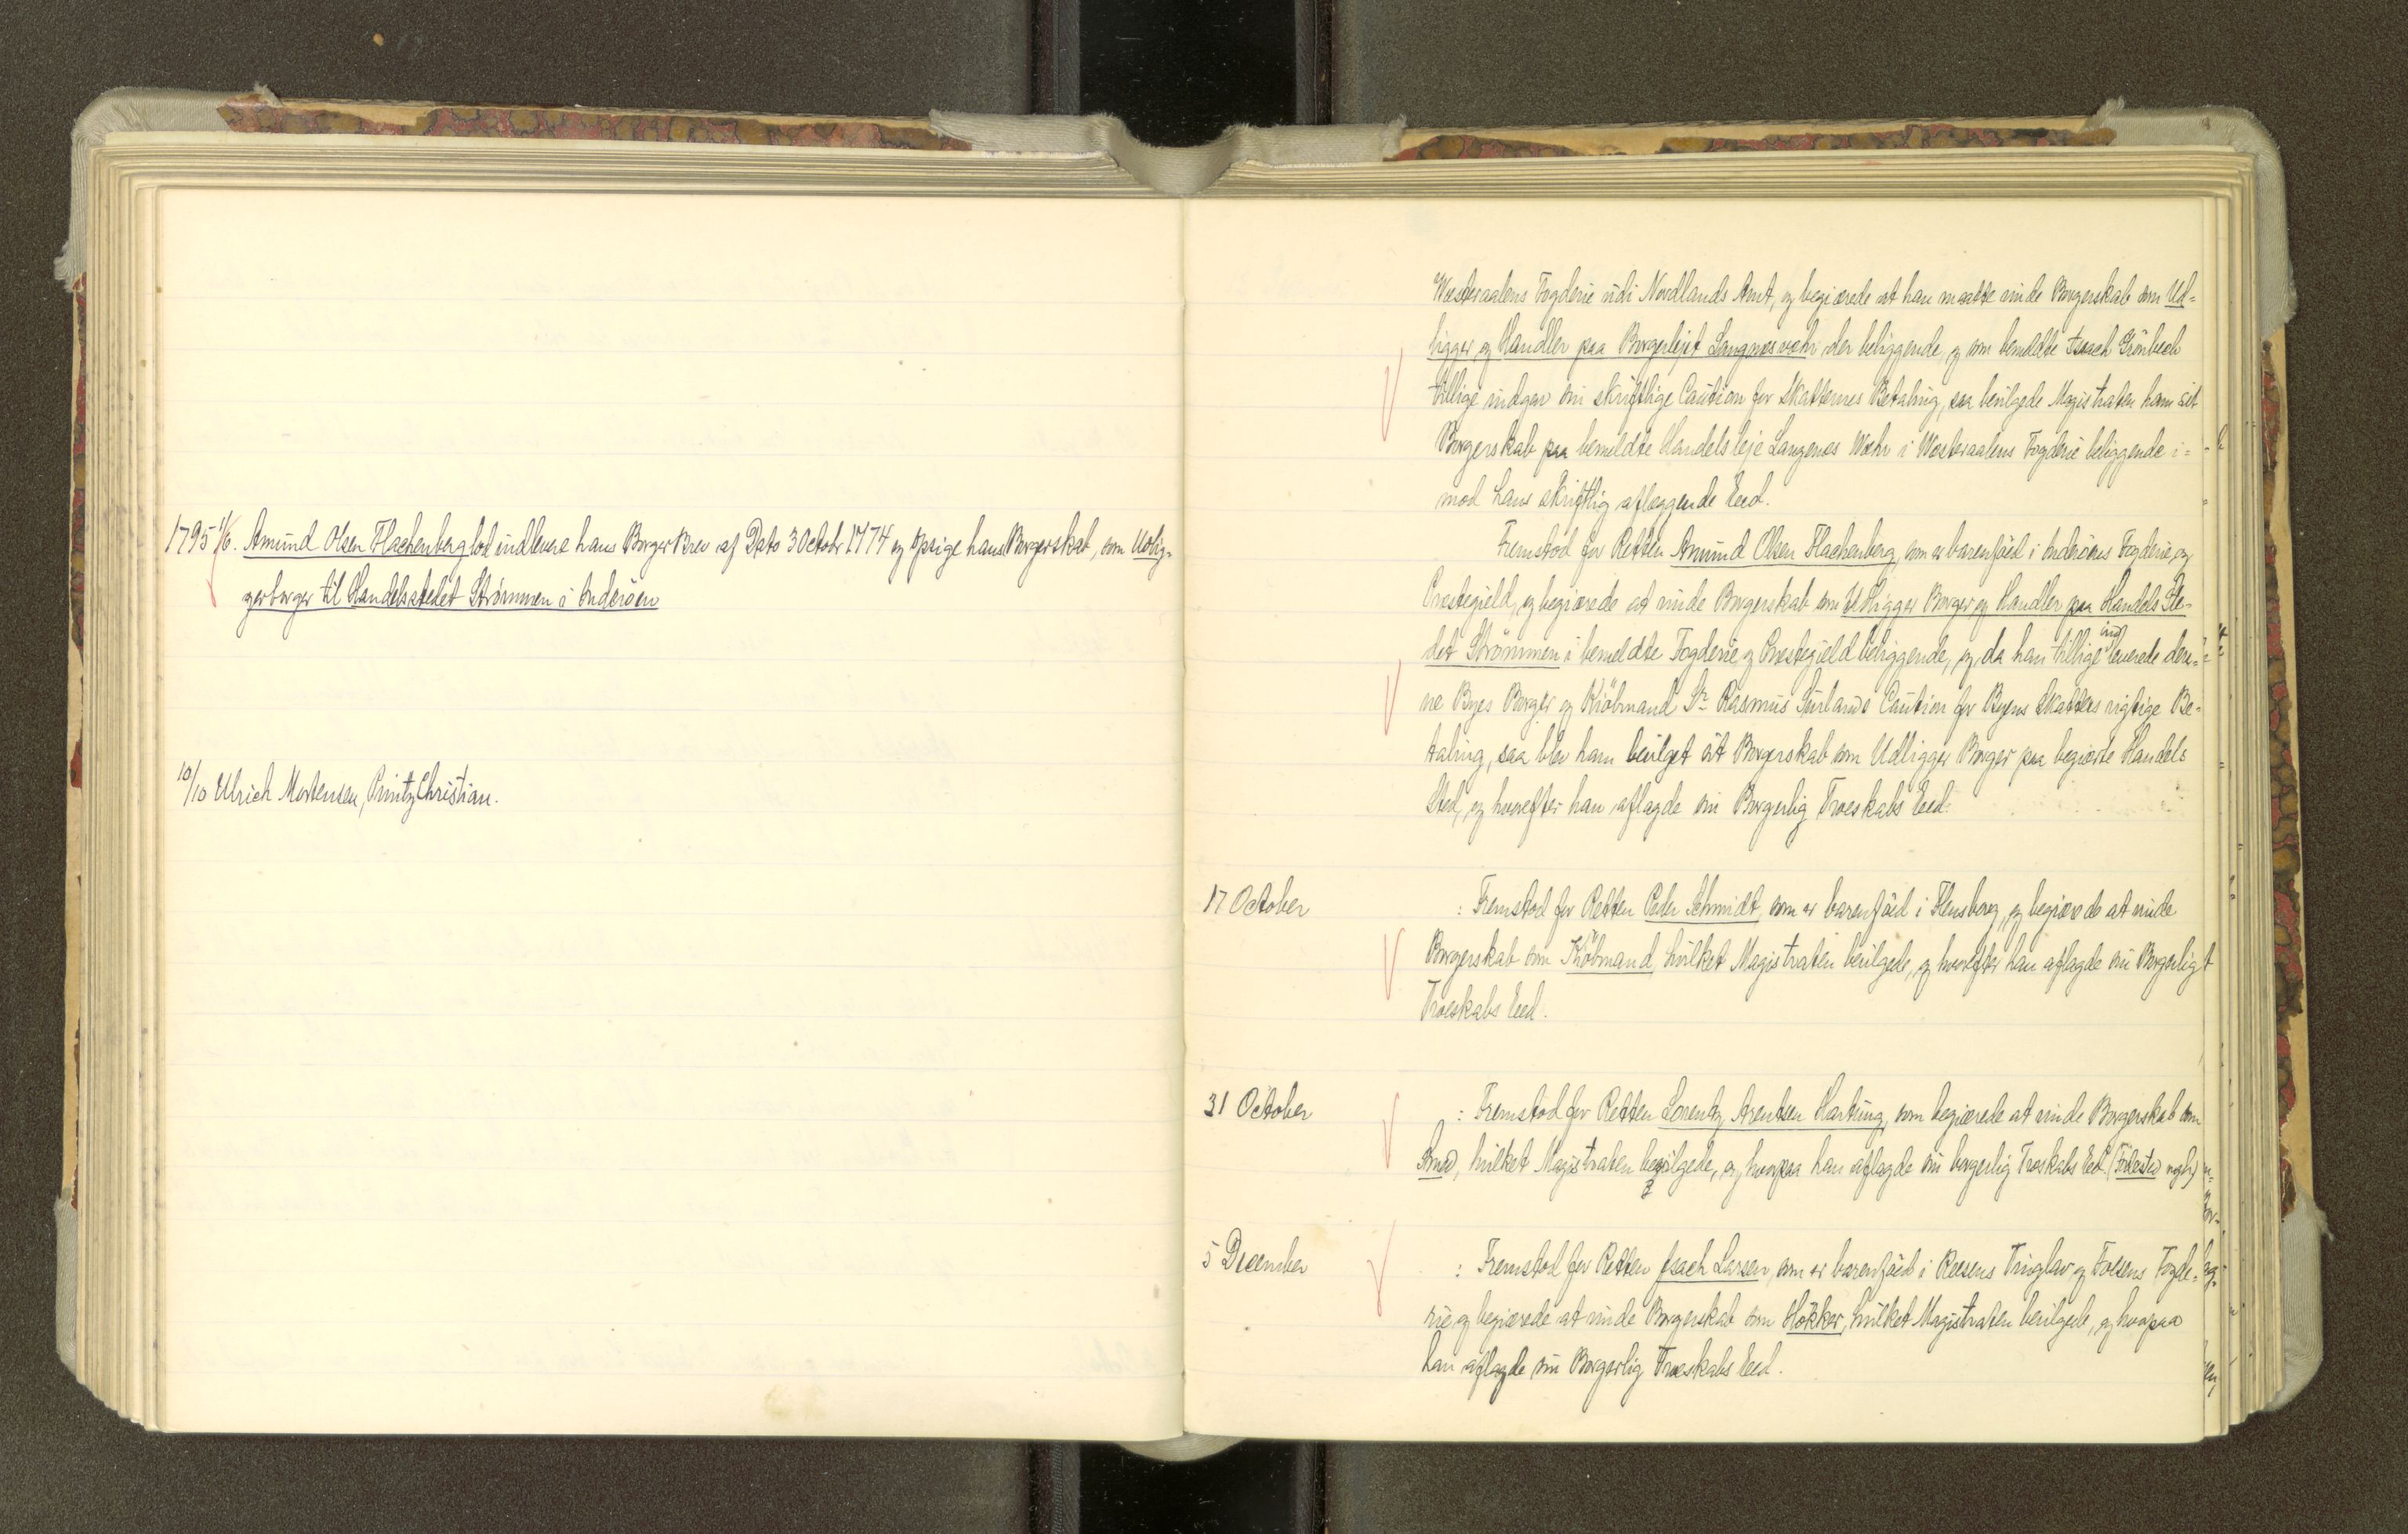 1795 1/6. Amund Olsen Flachenberg lod indlevere hans BorgerBrev af Dato 3 Octobr 1774 og opsige hans Borgerskab, som Udlig-
gerborger til Handelsstedet Strömmen i Inderöen
10/10 Ulrich Mortensen, Printz Christian.
Westeraalens Fogderie udi Nordlands Amt, og begiærede at han maatte vinde Borgerskab som Ud-
ligger og Handler paa Borgerlejet Langnæs wæhr der beliggende, og som bemeldte Isach Grönbech
tillige indgav sin skriftlige Caution for Skatternes Betaling, saa bevilgede Magistraten ham sit
Borgerskab paa bemeldte Handels leje Langenes Wæhr i Westeraalens Fogderie beliggende i-
mod hans skriftlig aflæggende Eed.
Fremstod for Retten Amund Olsen Flachenberg, som er barenföed i Inderöens Fogderie og
Præstegield, og begiærede at vinde Borgerskab som Udligger Borger og Handler paa Handels Ste-
det Strömmen i bemeldte Fogderie og Præstegield beliggende, og da han tillige ind leverede den-
ne Byes Borger og Kiöbmand Sr Rasmus Caution for Byens Skatters rigtige Be-
taling, saa blev ham bevilget sit Borgerskab som Udligger Borger paa begiærte Handels
Sted, og hvorefter han aflagde sin Borgerlig Troeskabs Eed.
17 October : Fremstod for Retten Peder Schmidt, som er barenföed i Flensborg, og begiærede at vinde
Borgerskab som Kiöbmand, hvilket Magistraten bevilgede, og hvorefter han aflagde sin Borgerligt
Troeskabs Eed.
31 October : Fremstod for Retten Lorentz Arentsen Hartung, som begiærede at vinde Borgerskab som
Smed, hvilket Magistraten bevilgede, og hvorpaa han aflagde sin borgerlig Troskabs Eed.
5 December : Fremstod for Retten Isach Larsen, som er barenföed i Reesens Tinglav og Fosens Fogde-
rie og begiærede at vinde Borgerskab som Hökker, hvilket Magistraten bevilgede, og hvorpaa
han aflagde sin Borgerlig Troeskabs Eed.